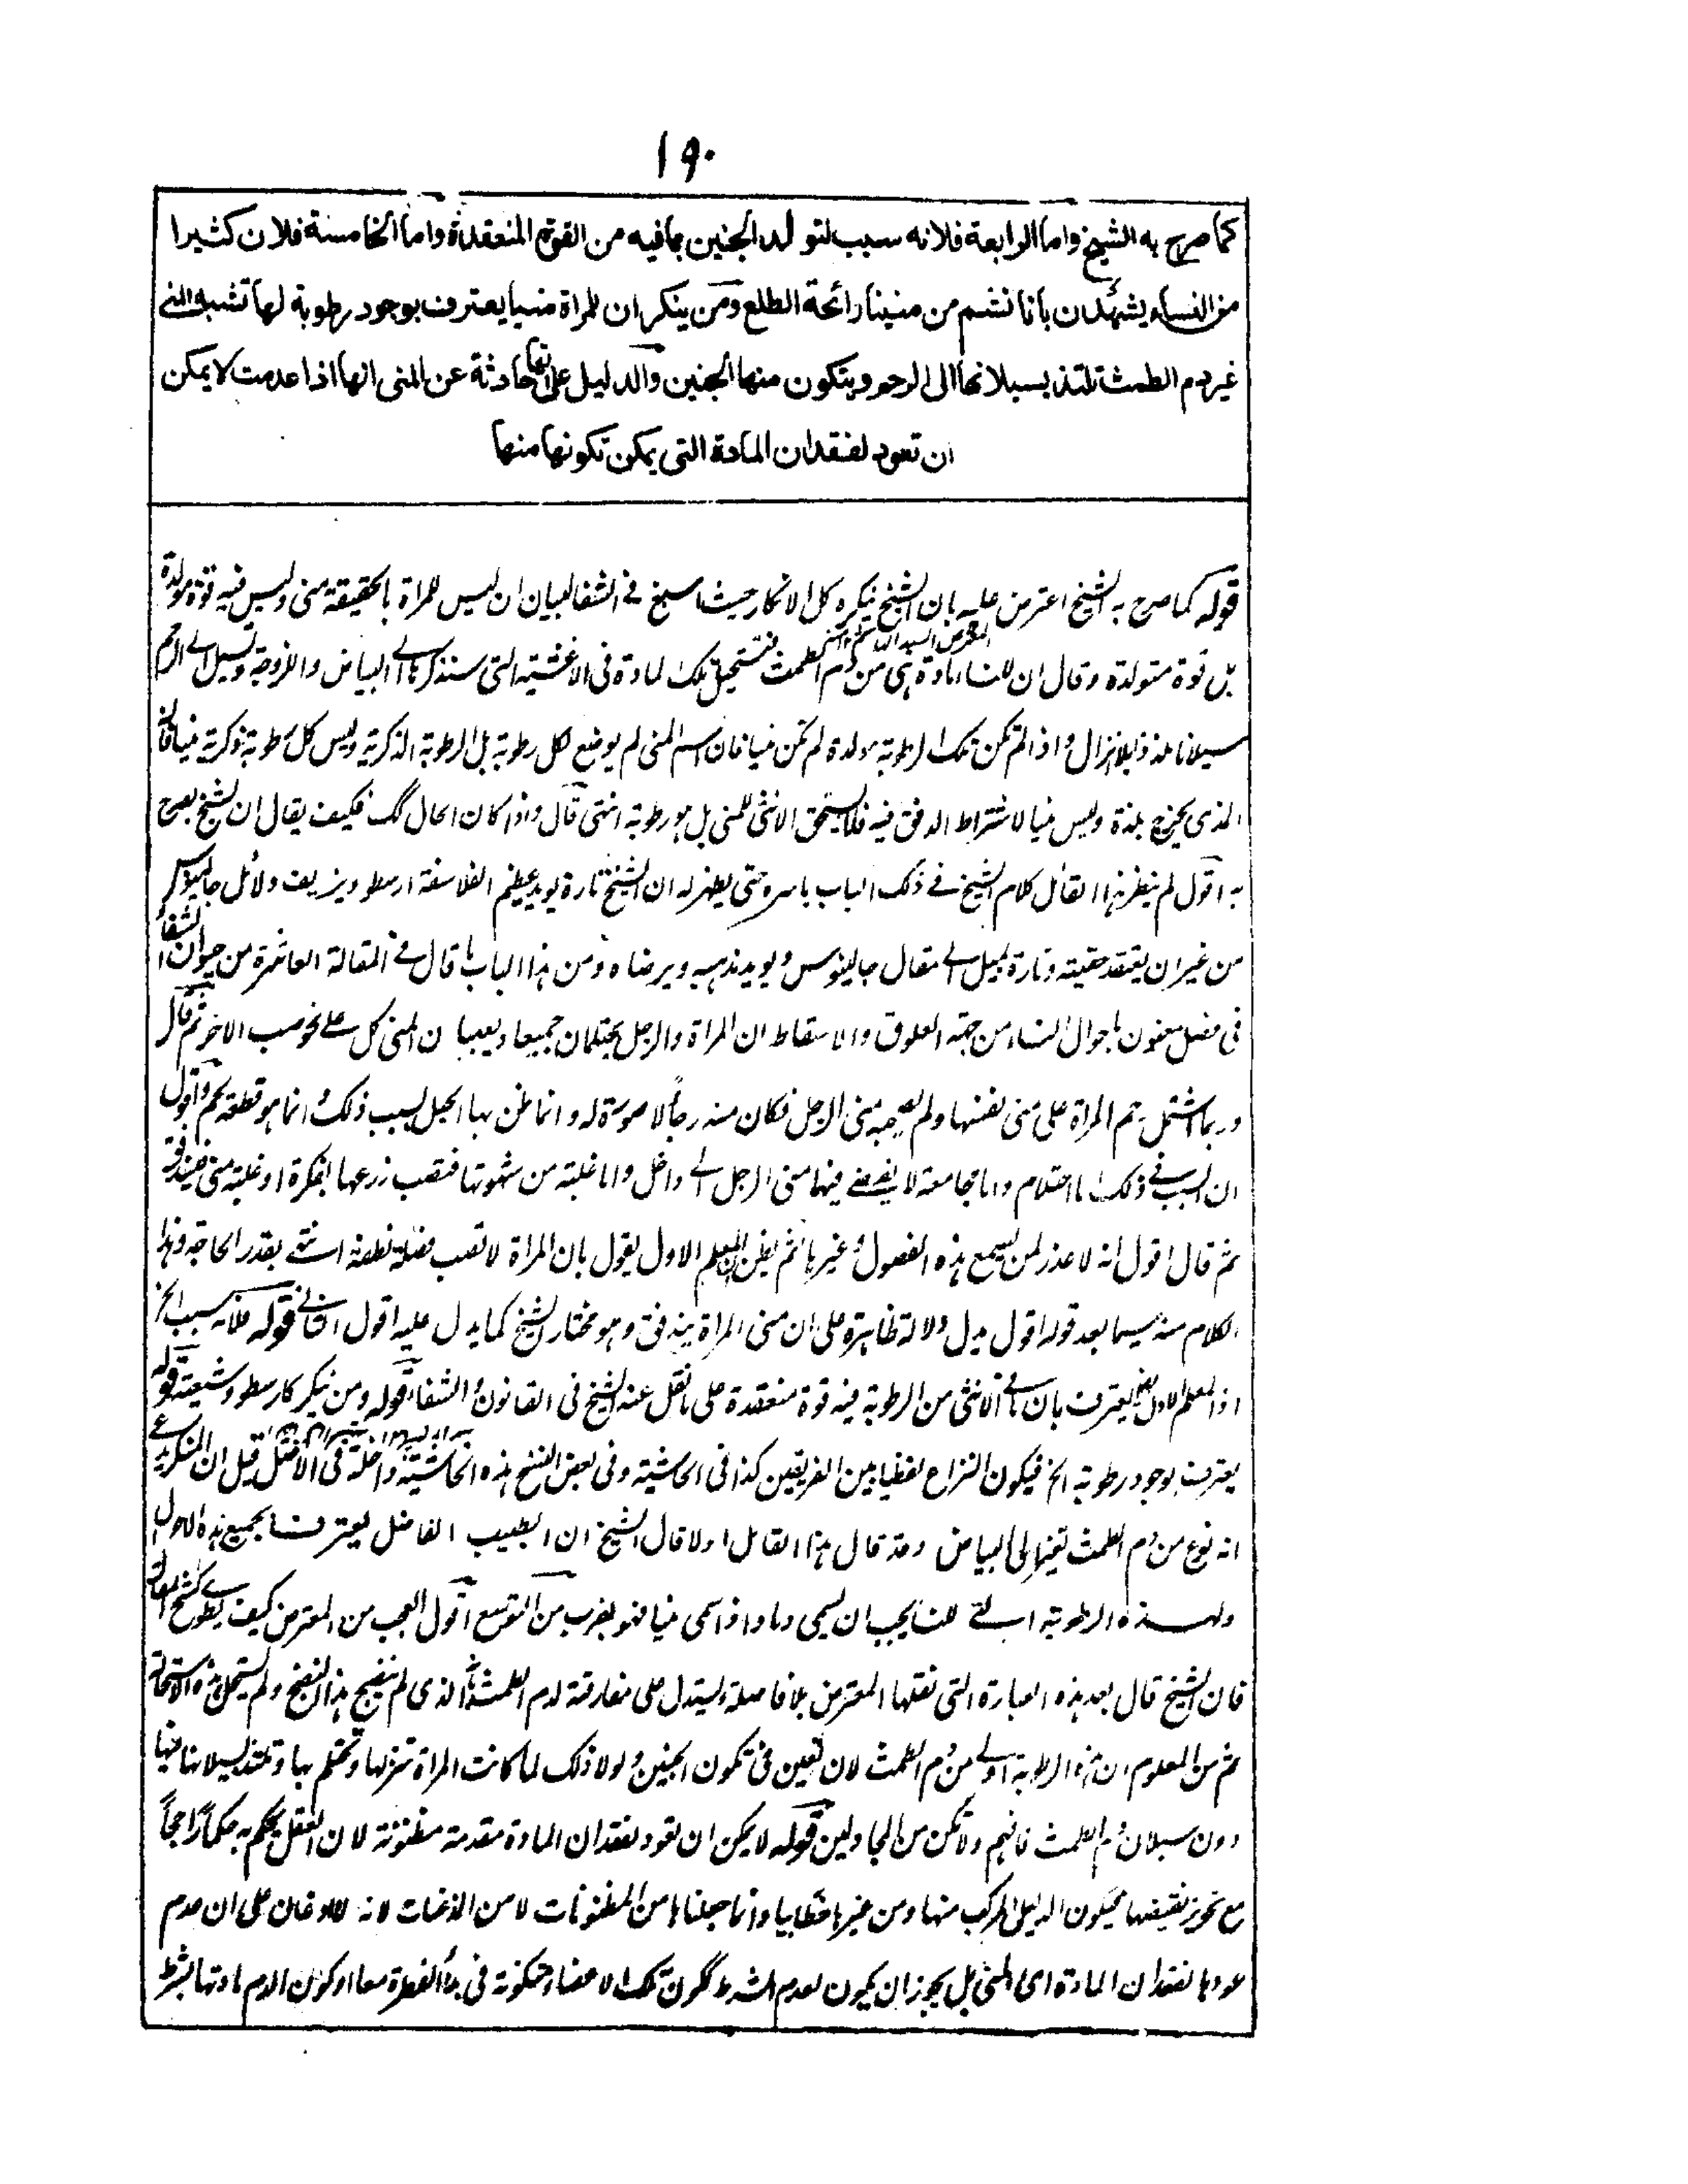 ١٩٠
كما صرح به الشيخ واما الرابعة فلانه سبب لتولد الجنين بما فيه من القوة المنعقدة واما الخامسة فلان كثيرا
من النساء يشهدن بانا نشم من منينا رائحة الطلع ومن ينكر ان للمراة منيا يعترف بوجود رطوبة لها تشبه المنى
غير دم الطمث تلتذ بسيلانها الى الرحم ويتكون منها الجنين والدليل على انها حادثة عن المنى انها اذا عدمت لا يمكن
ان تعود لفقدان المادة التى يمكن تكونها منها
قوله كما صرح به الشيخ اعترض عليه بان الشيخ ينكره كل الانكار حيث اسبغ فى الشفا لبيان ان ليس للمراة بالحقيقة منى وليس فيه قوة مولدة
بل قوة متولدة وقال ان للنساء مادة هى من دم الطمث فتستحيل تلك المادة فى الاغشية التى سنذكرها الى البياض واللزوجة وتسيل الى الرحم
سيلانا ملذذا بلا انزال واذا لم تكن تلك الرطوبة مولدة لم تكن منيا فان اسم المنى لم يوضع لكل رطوبة بل الرطوبة الذكرية وليس كل رطوبة ذكرية منيا فان
المذى يخرج بلذة وليس منيا لاشتراط الدفق فيه فلا يستحق الانثى للمنى بل هو رطوبة انتهى قال واذا كان الحال كك فكيف يقال ان الشيخ يصرح
به اقول لم ينظر هذا القائل كلام الشيخ فى ذلك الباب باسره حتى يظهر له ان الشيخ تارة يويد عظيم الفلاسفة ارسطو ويزيف دلائل جالينوس
من غير ان يعتقد حقيته وتارة يميل الى مقال جالينوس ويويد مذهبه ويرضاه ومن هذا الباب ما قال فى المقالة العاشرة من حيوان الشفا
فى فصل معنون باحوال النساء من جهة العلوق والاسقاط ان المراة والرجل يحتلمان جميعا ويصبان المنى كل على نحو صب الاخر ثم قال
وربما اشتمل رحم المراة على منى نفسها ولم يصحبه منى الرجل فكان منه رجأ لا صورة له وانما ظن بها الحبل بسبب ذلك وانما هو قطعة لحم واقول
ان السبب فى ذلك اما احتلام واما مجامعة لا يفضى فيها منى الرجل الى داخل واما غلبة من شهوتها فتصب زرعها بفكرة او غلبة منى
ثم قال اقول انه لا عذر لمن يسمع هذه الفصول وغيرها ثم يظن ان المعلم الاول يقول بان المراة لا تصب فضلة نطفة انتهى بقدر الحاجة وهذا
الكلام منه سيما بعد قوله اقول يدل دلالة ظاهرة على ان منى المراة يندفق وهو مختار الشيخ كما يدل عليه اقول الثانى قوله فلانه سبب الخ
اذ المعلم الاول ايضا يعترف بان ما فى الانثى من الرطوبة فيه قوة منعقدة على ما نقل عنه الشيخ فى القانون والشفاء قوله ومن ينكر كارسطو وشيعته قوله
يعترف بوجود رطوبة الخ فيكون النزاع لفظيا بين الفريقين كذا فى الحاشية وفى بعض النسخ هذه الحاشية داخلة فى الاصل قيل ان المنكر يدعى
انه نوع من دم الطمث تغير الى البياض وقد قال هذا القائل اولا قال الشيخ ان الطبيب الفاضل يعترف بجميع هذه الاحوال
ولهذه الرطوبة التى للنساء يجب ان يسمى دما واذا سمى منيا فهو بضرب من التوسع اقول العجب من المعترض كيف يطوى كشح المقال
فان الشيخ قال بعد هذه العبارة التى نقلها المعترض بلا فاصلة وليستدل على مفارقته لدم الطمث الذى لم ينضج هذا النضج ولم يستحل هذه الاستحالة
ثم من المعلوم ان هذه الرطوبة اولى من دم الطمث لان تعين فى تكون الجنين ولولا ذلك لما كانت المراة تنزلها وتحتلم بها وتلتذ بسيلانها فيها
دون سيلان دم الطمث فافهم ولا تكن من المجادلين قوله لا يمكن ان تعود لفقدان المادة مقدمة مظنونة لان العقل يحكم به حكما راجحا
مع تجويز نقيضها فيكون الدليل المركب منها ومن غيرها خطابيا وانما جعلناها من المظنونات لا من الاذعانات لانه لا اذعان على ان عدم
عودها لفقدان المادة اى المنى بل يجوز ان يكون لعدم الشرط ككون تلك الاعضاء متكونة فى بدأ الفطرة معا او كون الدم مادتها بشرط